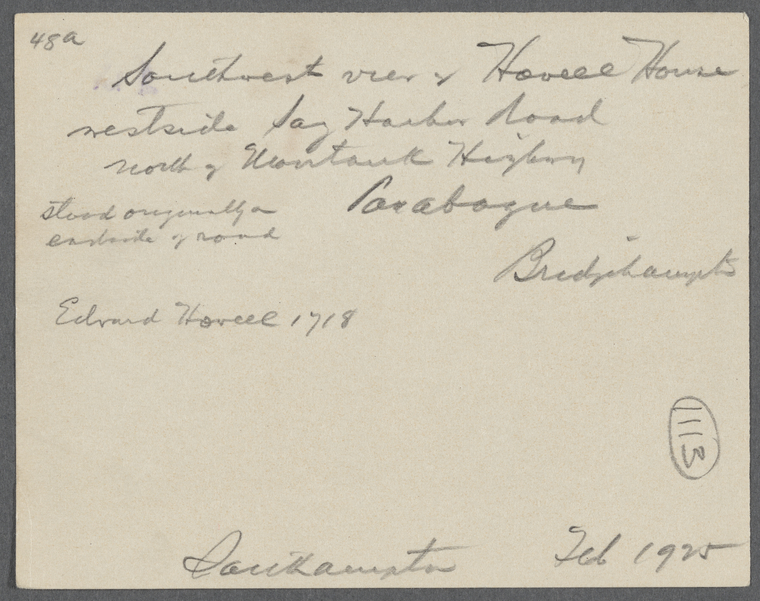 48a
Southwest view of Howell House
westside Sag Harbor Road
north of Montauk Highway
Poxabogue
stood originally on
eastside of road
Bridgehampton
Edward Howell 1718
1113
Southampton Feb 1925